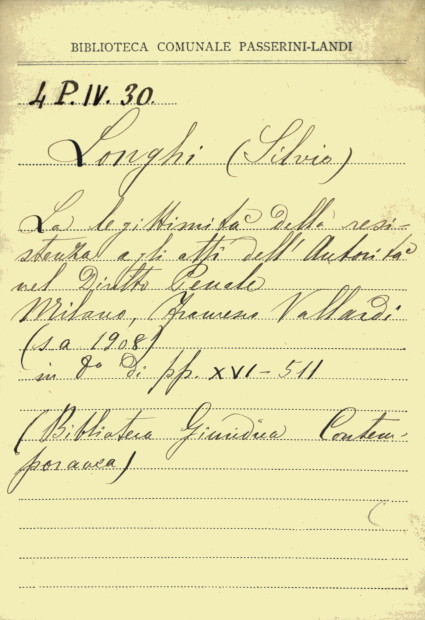 BIBLIOTECA COMUNALE PASSERINI-LANDI
4 P. IV. 30.
Longhi (Silvio)
La legittimità della resi-
stenza agli atti dell'Autorità
nel Diritto Penale
Milano, Francesco Vallardi
(s a 1908)
in 8° di pp. XVI - 511
(Biblioteca Giuridica Contem-
poranea)